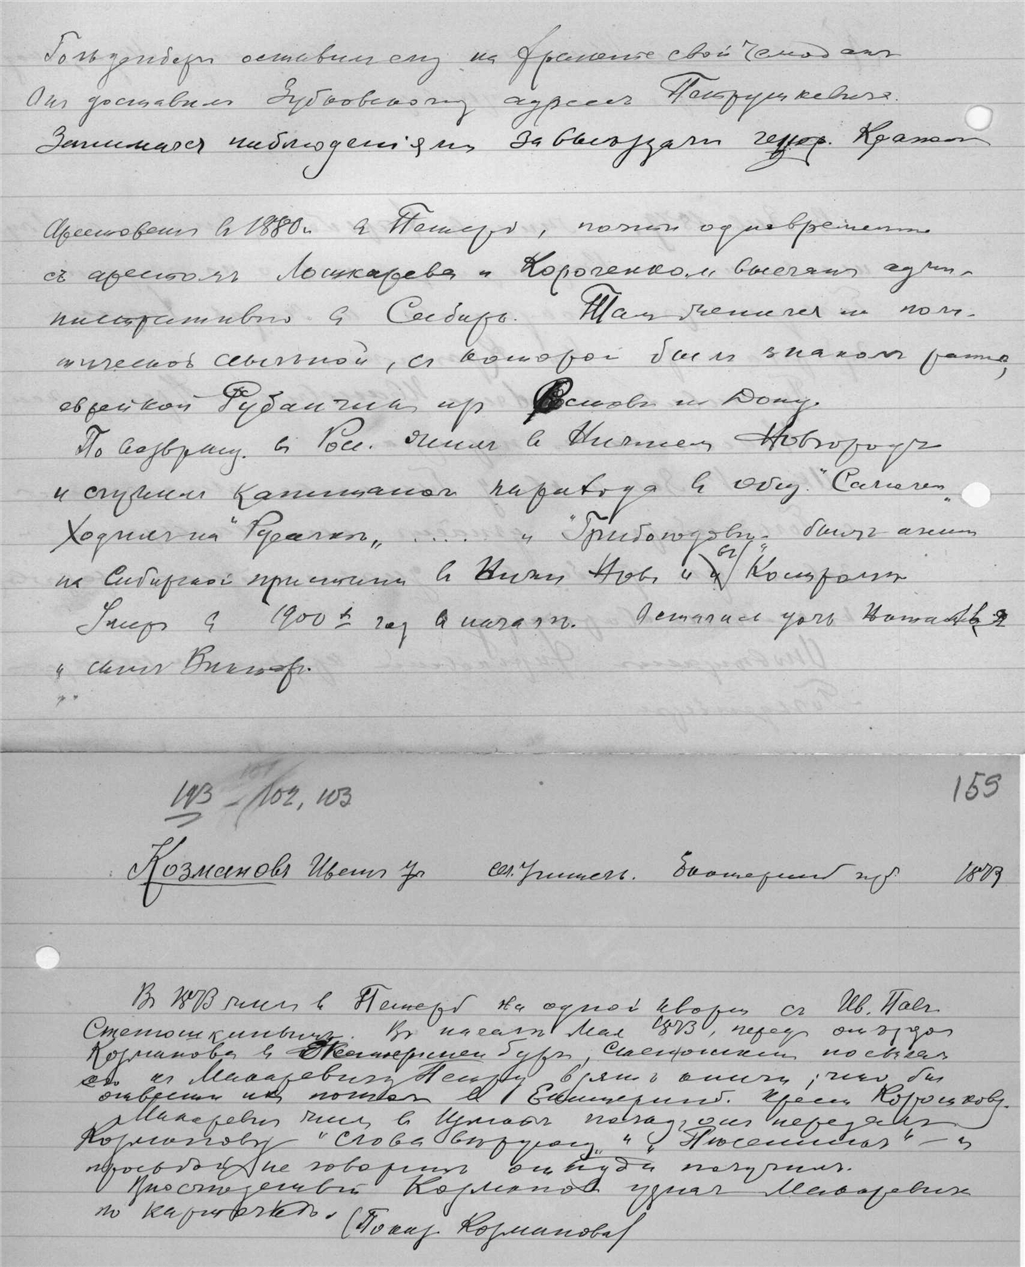 Гольденберг оставил ему на хранение свой чемодан
Он доставил Зубковскому адресъ Петрункевича.
Занимался наблюденіями за выездами генер.
Арестован в 1880 г. в Петерб, почти одновременно
съ арестомъ Лошкарева и Короченком выслан адми-
нистративно в Сибирь. Там женился на поли-
тической ссыльной, с которой был знаком ранее,
еврейкой Рубанчик из Ростова на Дону.
По возвращ. в Рос. жил в Нижнем Новгороде
и служил капитаном парохода в общ. "Самолет"
Ходил на " и "Грибоедовъ" был
на Сибирской пристани в Нижн Нов и в Костроме
Умер в 1900 х год в начале. Остались дочь
и сын Виктор.
193 - 102, 103
159
Козмановъ Иван сел. учитель. Екатеринб губ 1873
В 1873 жил в Петерб на одной кварт с Ив. Павл
В начале Мая 1873, перед отъездом
Козманова в Екатеринбург, послал
его к Макаревичу Петру взять книги, чтобы
отвезти их потом в Екатеринб.
Макаревич передал
Козманову "Слова верующ" и -и
просьбой не говорить откуда получил.
Впоследствіи Козманов узнал Макаревича
по карточке. (Показ. Козманова)